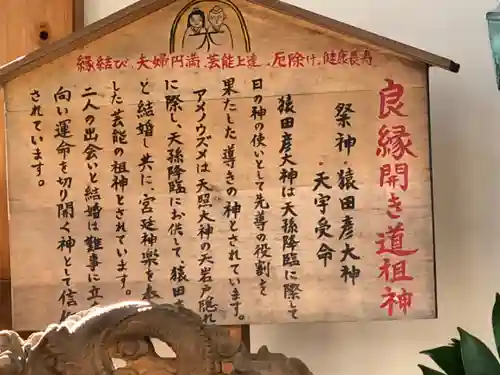 縁結び、夫婦円満、芸能上達、厄除け、健康長寿
良縁開き道祖神
祭神・猿田彦大神
・天宇受命
猿田彦大神は天孫降臨に際して
日の神の使いとして先導の役割を
果たした導きの神とされています。
アメノウズメは天照大神の天岩戸隠れ
に際し、天孫降臨にお供して、猿田
と結婚し共に、宮廷神楽を
した芸能の祖神とされています。
二人の出会いと結婚は難事に立
向い運命を切り開く神として信
されています。